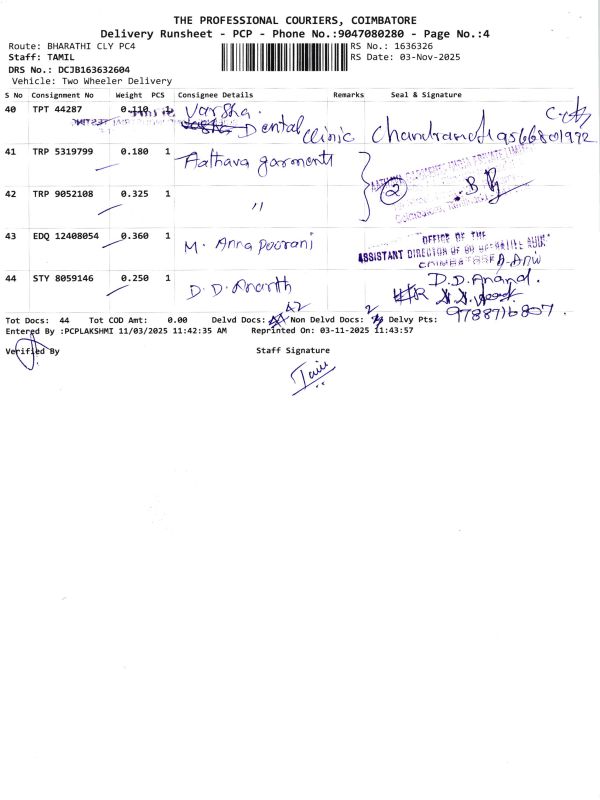 THE PROFESSIONAL COURIERS, COIMBATORE
Delivery Runsheet - PCP - Phone No.:9047080280 - Page No.:4
Route: BHARATHI CLY PC4 RS No.: 1636326
Staff: TAMIL RS Date: 03-Nov-2025
DRS No.: DCJB163632604
Vehicle: Two Wheeler Delivery
S No Consignment No Weight PCS Consignee Details Remarks Seal & Signature
40 TPT 44287 0.110 Varsha.
Dental Clinic Chandranathi 9566801972
41 TRP 5319799 0.180 1 Aathava garments
42 TRP 9052108 0.325 1 " 2
43 EDQ 12408054 0.360 1 M. Anna poorani OFFICE OF THE
ASSISTANT DIRECTOR OF CO OPERATIVE AUDIT
COIMBATORE
44 STY 8059146 0.250 1 D.D. Ananth D.D. Anand.
9788716807.
Tot Docs: 44 Tot COD Amt: 0.00 Delvd Docs: 42 Non Delvd Docs: 2 Delvy Pts:
Entered By :PCPLAKSHMI 11/03/2025 11:42:35 AM Reprinted On: 03-11-2025 11:43:57
Verified By Staff Signature